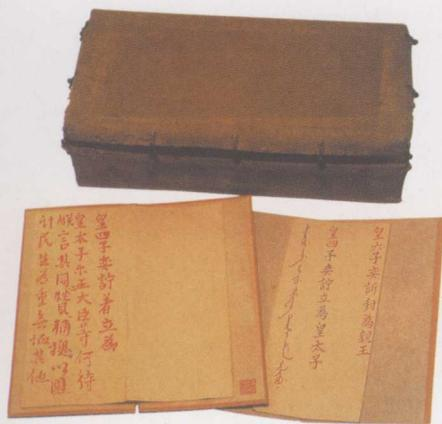 皇六子奕訢封為親王
皇四子奕詝立為皇太子
皇四子奕詝著立為
皇太子尔王大臣等何待
朕言其同心贊輔總以國
計民生為重無恤其他